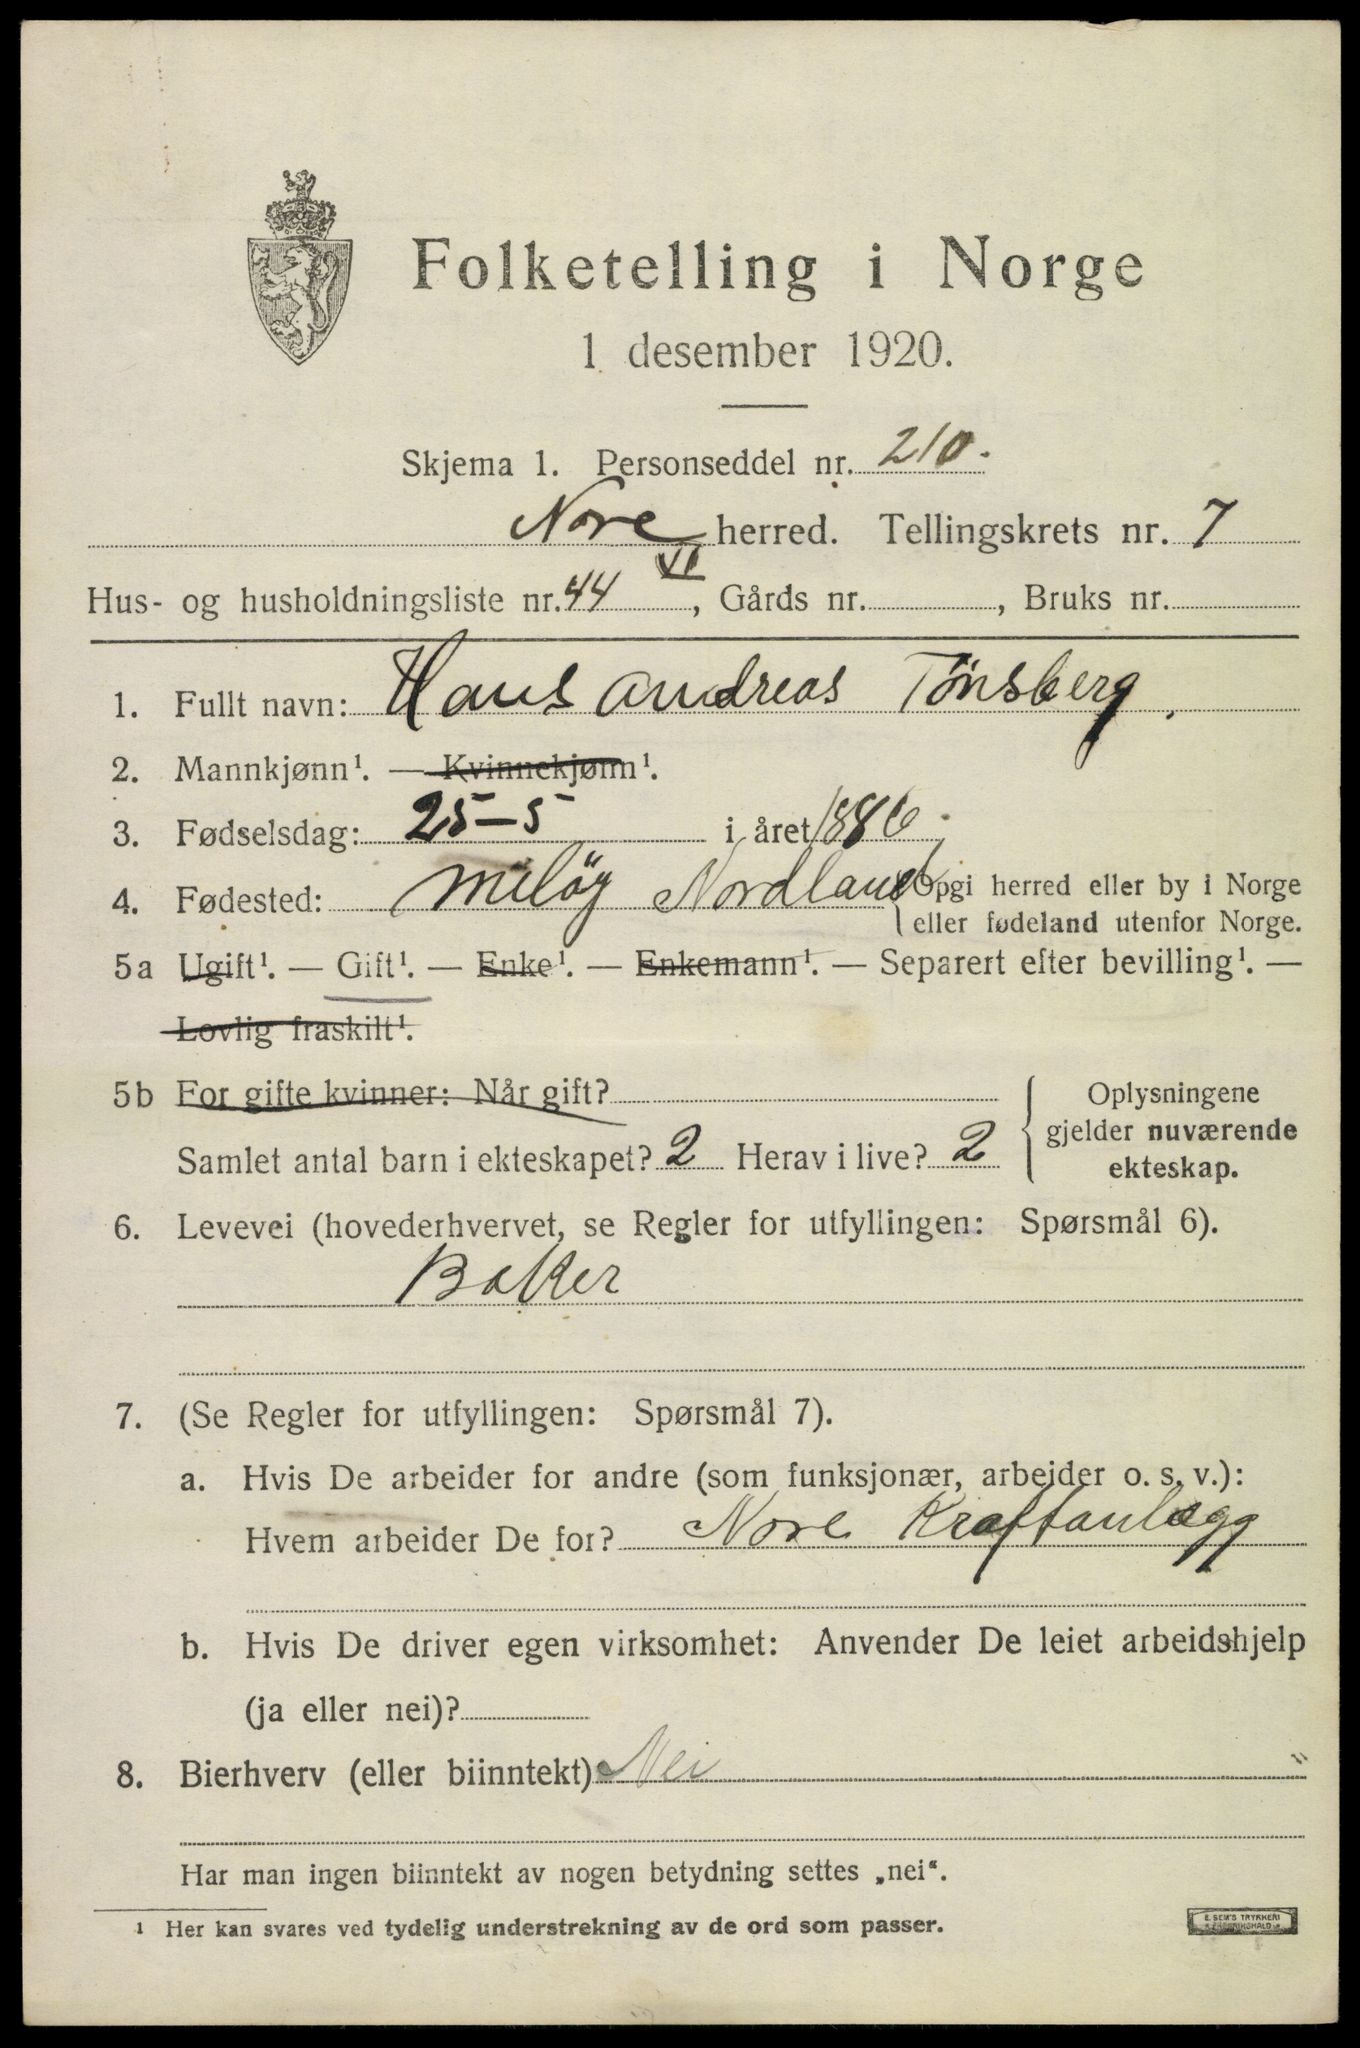 Folketelling i Norge
1 desember 1920.
Skjema 1. Personseddel nr. 210.
Nore herred. Tellingskrets nr. 7
VI
Hus- og husholdningsliste nr. 44, Gårds nr. , Bruks nr.
1. Fullt navn: Hans Andreas Tönsberg.
2. Mannkjønn¹. — Kvinnekjønn¹.
3. Fødselsdag: 25-5 i året 1886.
4. Fødested: Meløy Nordland {Opgi herred eller by i Norge
eller fødeland utenfor Norge.
5a Ugift¹. — Gift¹. — Enke¹. — Enkemann¹. — Separert efter bevilling¹. —
Lovlig fraskilt¹.
5b For gifte kvinner: Når gift?
Samlet antal barn i ekteskapet? 2 Herav i live? 2
Oplysningene
gjelder nuværende
ekteskap.
6. Levevei (hovederhvervet, se Regler for utfyllingen: Spørsmål 6).
Baker
7. (Se Regler for utfyllingen: Spørsmål 7).
a. Hvis De arbeider for andre (som funksjonær, arbeider o. s. v.):
Hvem arbeider De for? Nore Kraftanlægg
b. Hvis De driver egen virksomhet: Anvender De leiet arbeidshjelp
(ja eller nei)?
8. Bierhverv (eller biinntekt) Nei
Har man ingen biinntekt av nogen betydning settes „nei“.
¹ Her kan svares ved tydelig understrekning av de ord som passer.
E. SEM'S TRYKKERI
FREDRIKSHALD